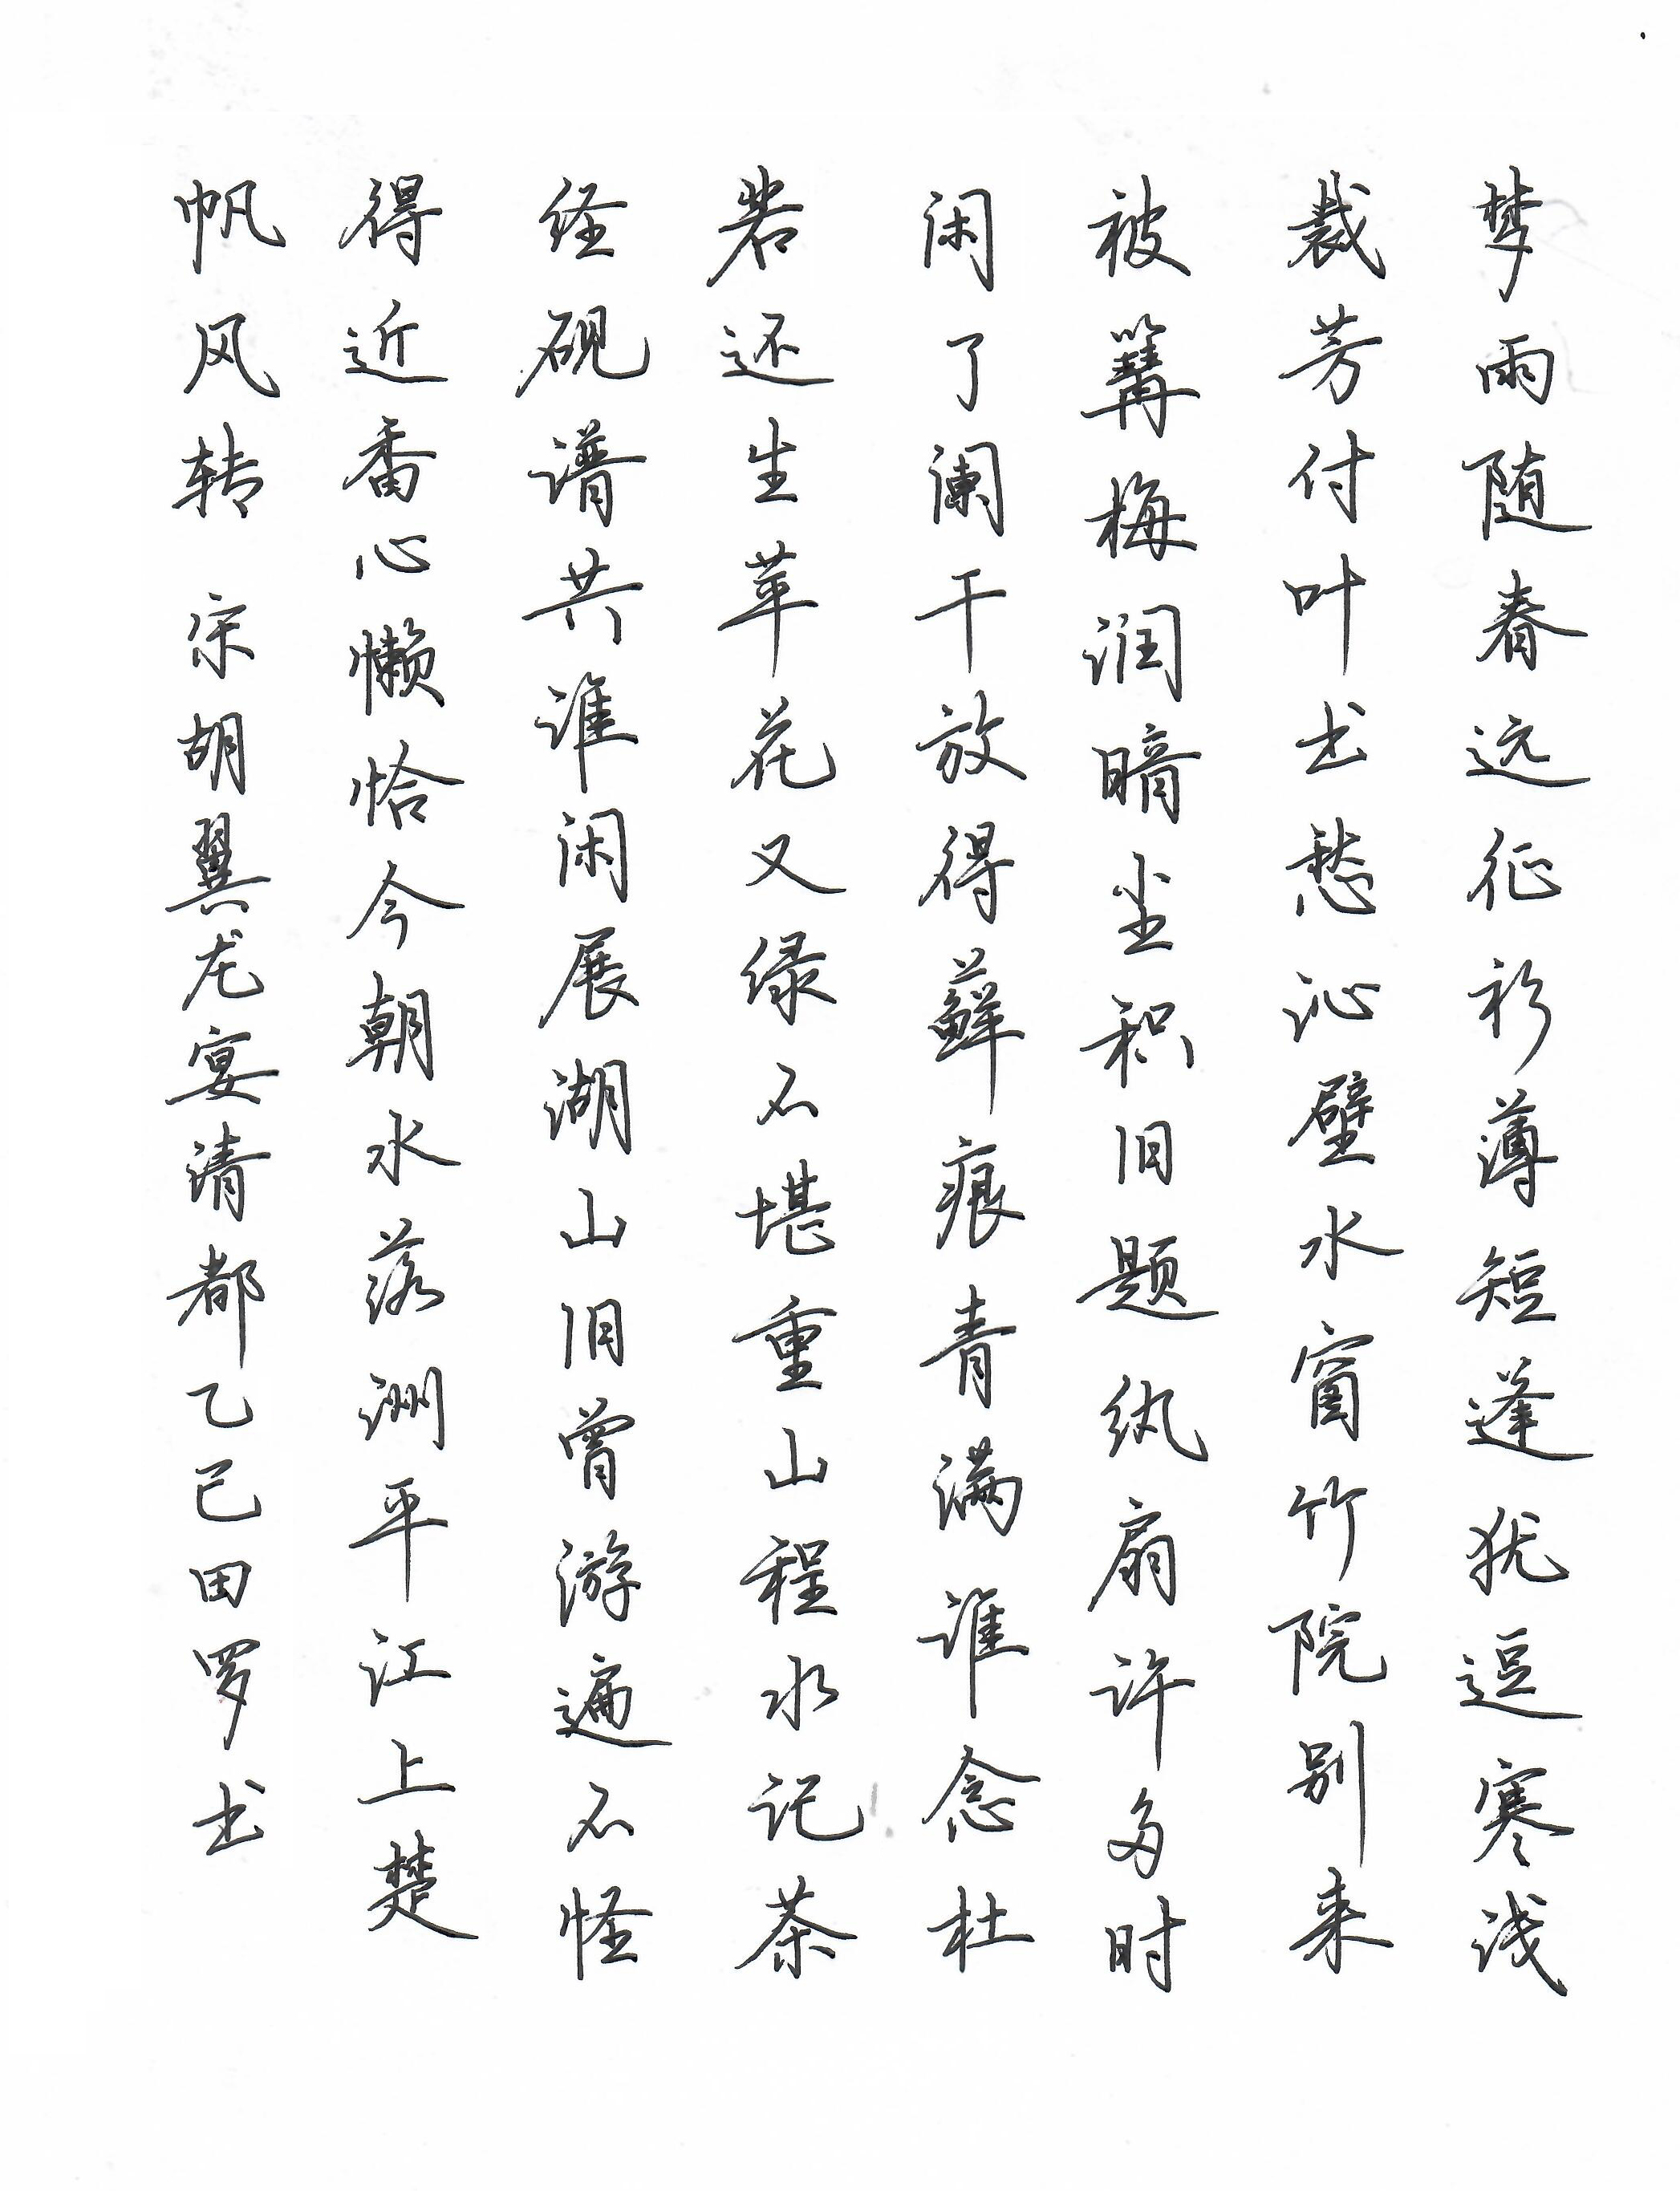 梦雨随春远征衫薄短逢犹逗寒浅
裁芳付叶书愁沁壁水窗竹院别来
被篝梅润暗尘积旧题纨扇许多时
闲了阑干放得藓痕青满谁念杜
若还生苹花又绿不堪重山程水记茶
经砚谱共谁闲展湖山旧曾游遍不怪
得近番心懒恰今朝水落洲平江上楚
帆风转 宋胡翼龙宴清都乙巳田罗书